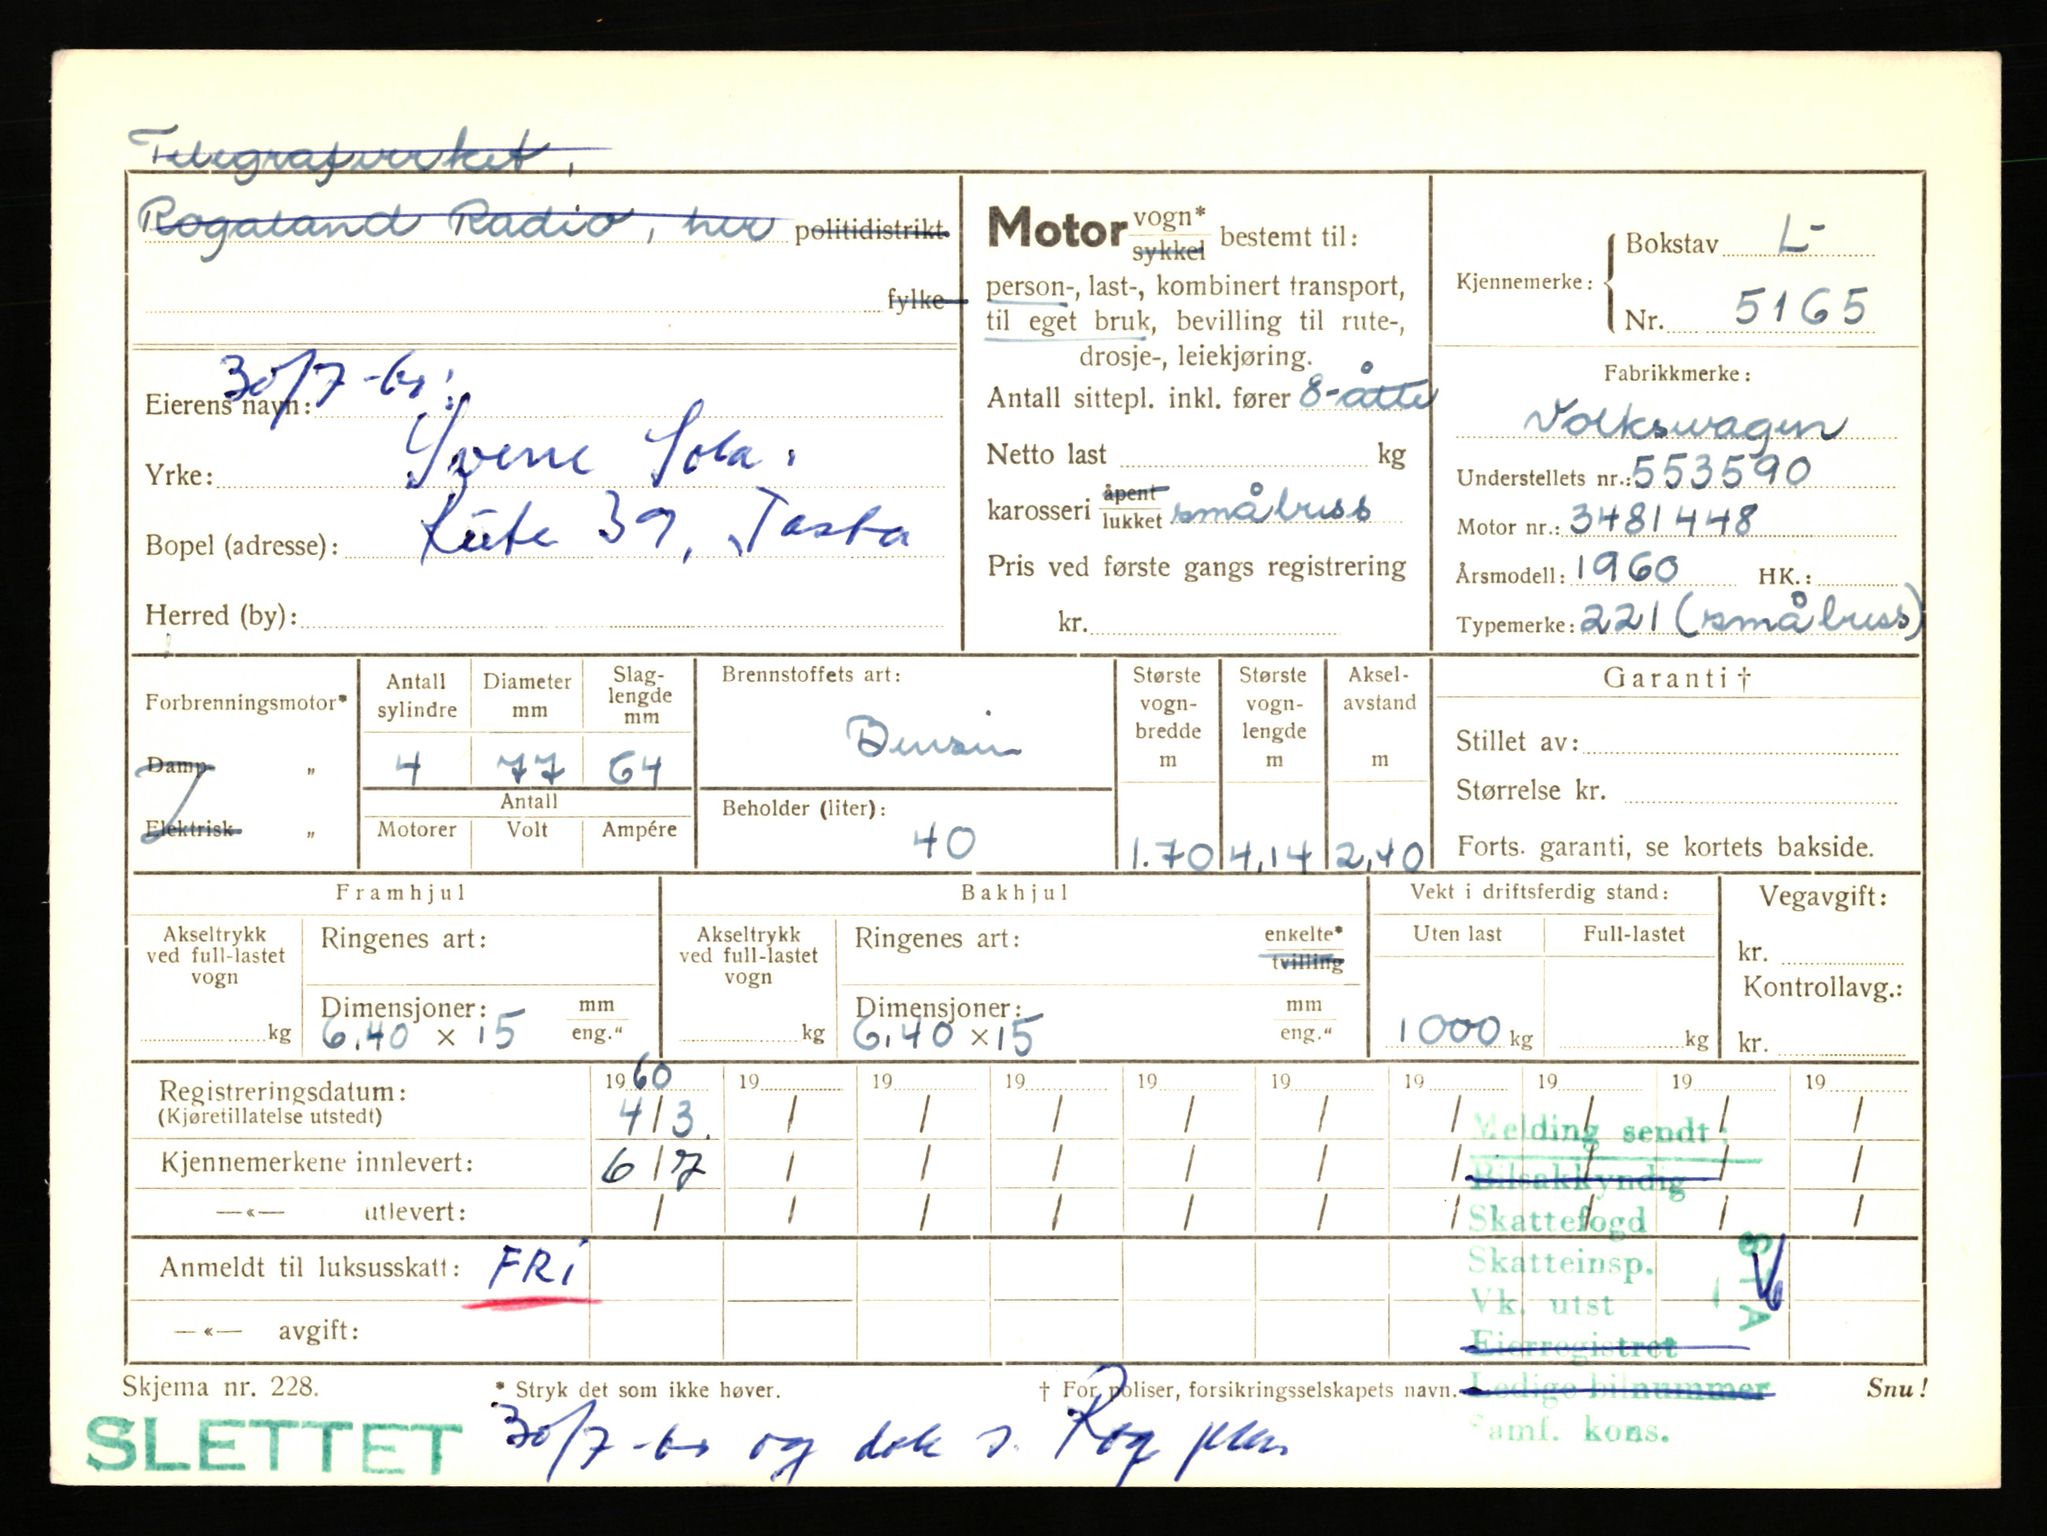 Telegrafverket,
Rogaland Radio, her politidistrikt
fylke
30/7-60:
Eierens navn:
Yrke: Sverre Sola.
Bopel (adresse): 39, Tasta
Herred (by):
Motor vogn* sykkel bestemt til:
person-, last-, kombinert transport,
til eget bruk, bevilling til rute-,
drosje-, leiekjøring.
Antall sittepl. inkl. fører 8-åtte
Netto last kg
karosseri åpent lukket småbuss
Pris ved første gangs registrering
kr.
Kjennemerke: Bokstav L-
Nr. 5165
Fabrikkmerke:
Volkswagen
Understellets nr.: 553590
Motor nr.: 3481448
Årsmodell: 1960 HK.:
Typemerke: 221 (småbuss)
Forbrenningsmotor*
Damp „
Elektrisk „
Antall sylindre
Diameter mm
Slag-lengde mm
4 77 64
Antall
Motorer Volt Ampére
Brennstoffets art:
Bensin
Beholder (liter):
40
Største vogn-bredde m
Største vogn-lengde m
Aksel-avstand m
1.70 4,14 2,40
Garanti †
Stillet av:
Størrelse kr.
Forts. garanti, se kortets bakside.
Framhjul
Akseltrykk ved full-lastet vogn
kg
Ringenes art:
Dimensjoner: mm eng.“
6.40 × 15
Bakhjul
Akseltrykk ved full-lastet vogn
kg
Ringenes art: enkelte* tvilling
Dimensjoner: mm eng.“
6.40 × 15
Vekt i driftsferdig stand:
Uten last Full-lastet
1000 kg kg
Vegavgift:
kr.
Kontrollavg.:
kr.
Registreringsdatum: 1960 19 19 19 19 19 19 19 19 19
(Kjøretillatelse utstedt) 4/3. / / / / / / / / /
Kjennemerkene innlevert: 6/7 / / / / / / / / /
—«— utlevert: / / / / / / / / / /
Anmeldt til luksusskatt: FRI
—«— avgift:
Melding sendt:
Bilsakkyndig
Skattefogd
Skatteinsp.
Vk. utst
Eierregistret
Ledige bilnummer
Samf. kons.
Skjema nr. 228.
* Stryk det som ikke høver.
† For poliser, forsikringsselskapets navn.
Snu!
SLETTET
30/7-60 og dok s. Rog